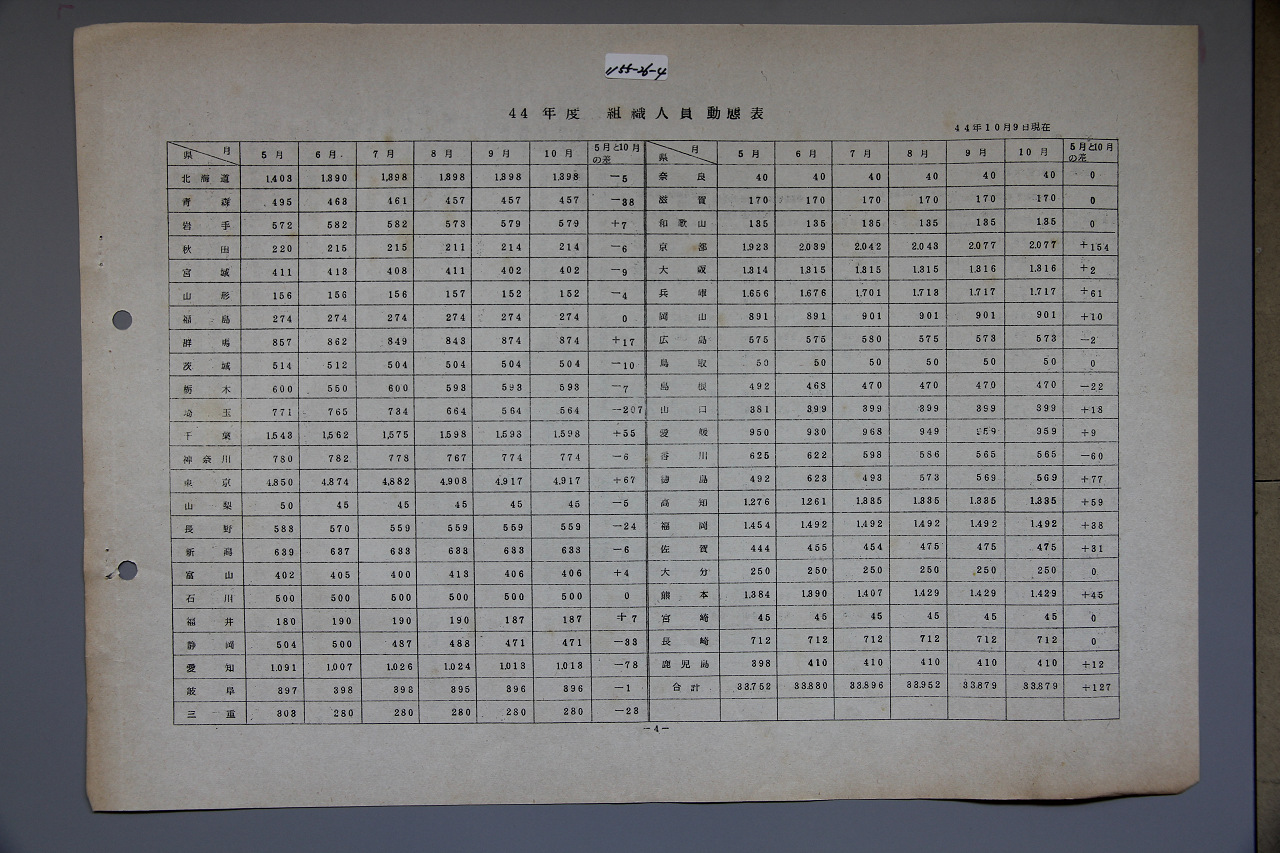 1155-26-4
44年度 組織人員動態表
44年10月9日現在
県 月 5月 6月 7月 8月 9月 10月 5月と10月の差 県 月 5月 6月 7月 8月 9月 10月 5月と10月の差
北海道 1,403 1,390 1,398 1,398 1,398 1,398 −5 奈良 40 40 40 40 40 40 0
青森 495 463 461 457 457 457 −38 滋賀 170 170 170 170 170 170 0
岩手 572 582 582 573 579 579 +7 和歌山 135 135 135 135 135 135 0
秋田 220 215 215 211 214 214 −6 京都 1,923 2,039 2,042 2,043 2,077 2,077 +154
宮城 411 413 408 411 402 402 −9 大阪 1,314 1,315 1,315 1,315 1,316 1,316 +2
山形 156 156 156 157 152 152 −4 兵庫 1,656 1,676 1,701 1,713 1,717 1,717 +61
福島 274 274 274 274 274 274 0 岡山 891 891 901 901 901 901 +10
群馬 857 862 849 843 874 874 +17 広島 575 575 580 575 573 573 −2
茨城 514 512 504 504 504 504 −10 鳥取 50 50 50 50 50 50 0
栃木 600 550 600 593 593 593 −7 島根 492 468 470 470 470 470 −22
埼玉 771 765 734 664 564 564 −207 山口 381 399 399 399 399 399 +18
千葉 1,543 1,562 1,575 1,598 1,598 1,598 +55 愛媛 950 930 968 949 959 959 +9
神奈川 780 782 778 767 774 774 −6 香川 625 622 598 586 565 565 −60
東京 4,850 4,874 4,882 4,908 4,917 4,917 +67 徳島 492 623 493 573 569 569 +77
山梨 50 45 45 45 45 45 −5 高知 1,276 1,261 1,335 1,335 1,335 1,335 +59
長野 583 570 559 559 559 559 −24 福岡 1,454 1,492 1,492 1,492 1,492 1,492 +38
新潟 639 637 633 633 633 633 −6 佐賀 444 455 454 475 475 475 +31
富山 402 405 400 413 406 406 +4 大分 250 250 250 250 250 250 0
石川 500 500 500 500 500 500 0 熊本 1,384 1,390 1,407 1,429 1,429 1,429 +45
福井 180 190 190 190 187 187 +7 宮崎 45 45 45 45 45 45 0
静岡 504 500 487 488 471 471 −33 長崎 712 712 712 712 712 712 0
愛知 1,091 1,007 1,026 1,024 1,013 1,013 −78 鹿児島 398 410 410 410 410 410 +12
岐阜 397 398 393 395 396 396 −1 合計 33,752 33,880 33,896 33,952 33,879 33,879 +127
三重 303 280 280 280 280 280 −23
−4−